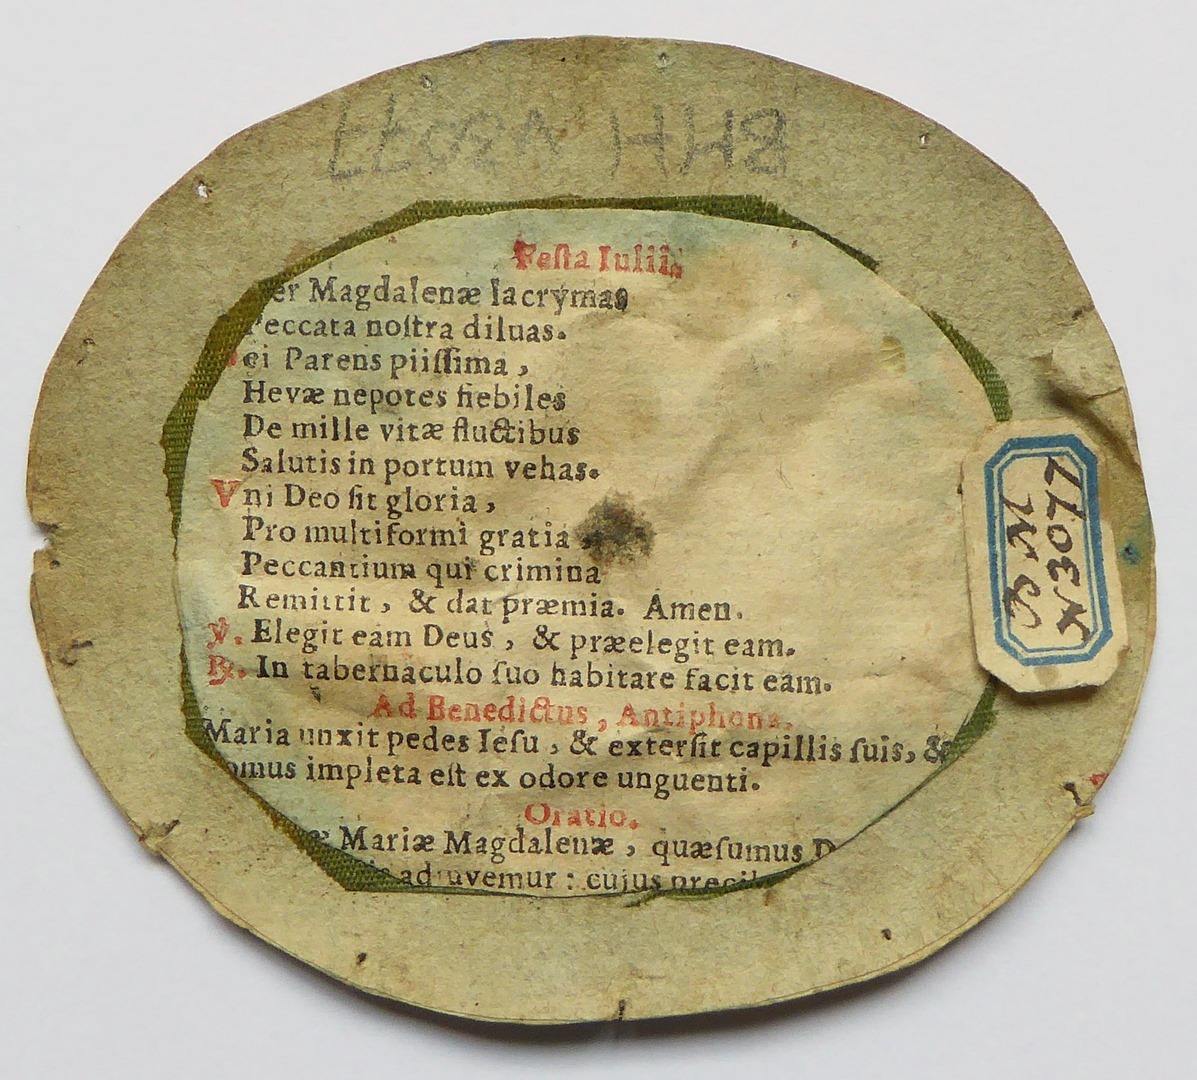 BHH W3077
Festa Iulii.
er Magdalenæ lacrymas
Peccata noſtra diluas.
ei Parens piiſſima ,
Hevæ nepotes flebiles
De mille vitæ fluctibus
Salutis in portum vehas.
Vni Deo ſit gloria ,
Pro multiformi gratia
Peccantium qui crimina
Remittit , & dat præmia. Amen.
℣. Elegit eam Deus , & præelegit eam.
℞. In tabernaculo ſuo habitare facit eam.
Ad Benedictus , Antiphona.
Maria unxit pedes Ieſu , & exterſit capillis ſuis, &
omus impleta eſt ex odore unguenti.
Oratio.
æ Mariæ Magdalenæ , quæſumus D
adiuvemur : cujus preci
N3077